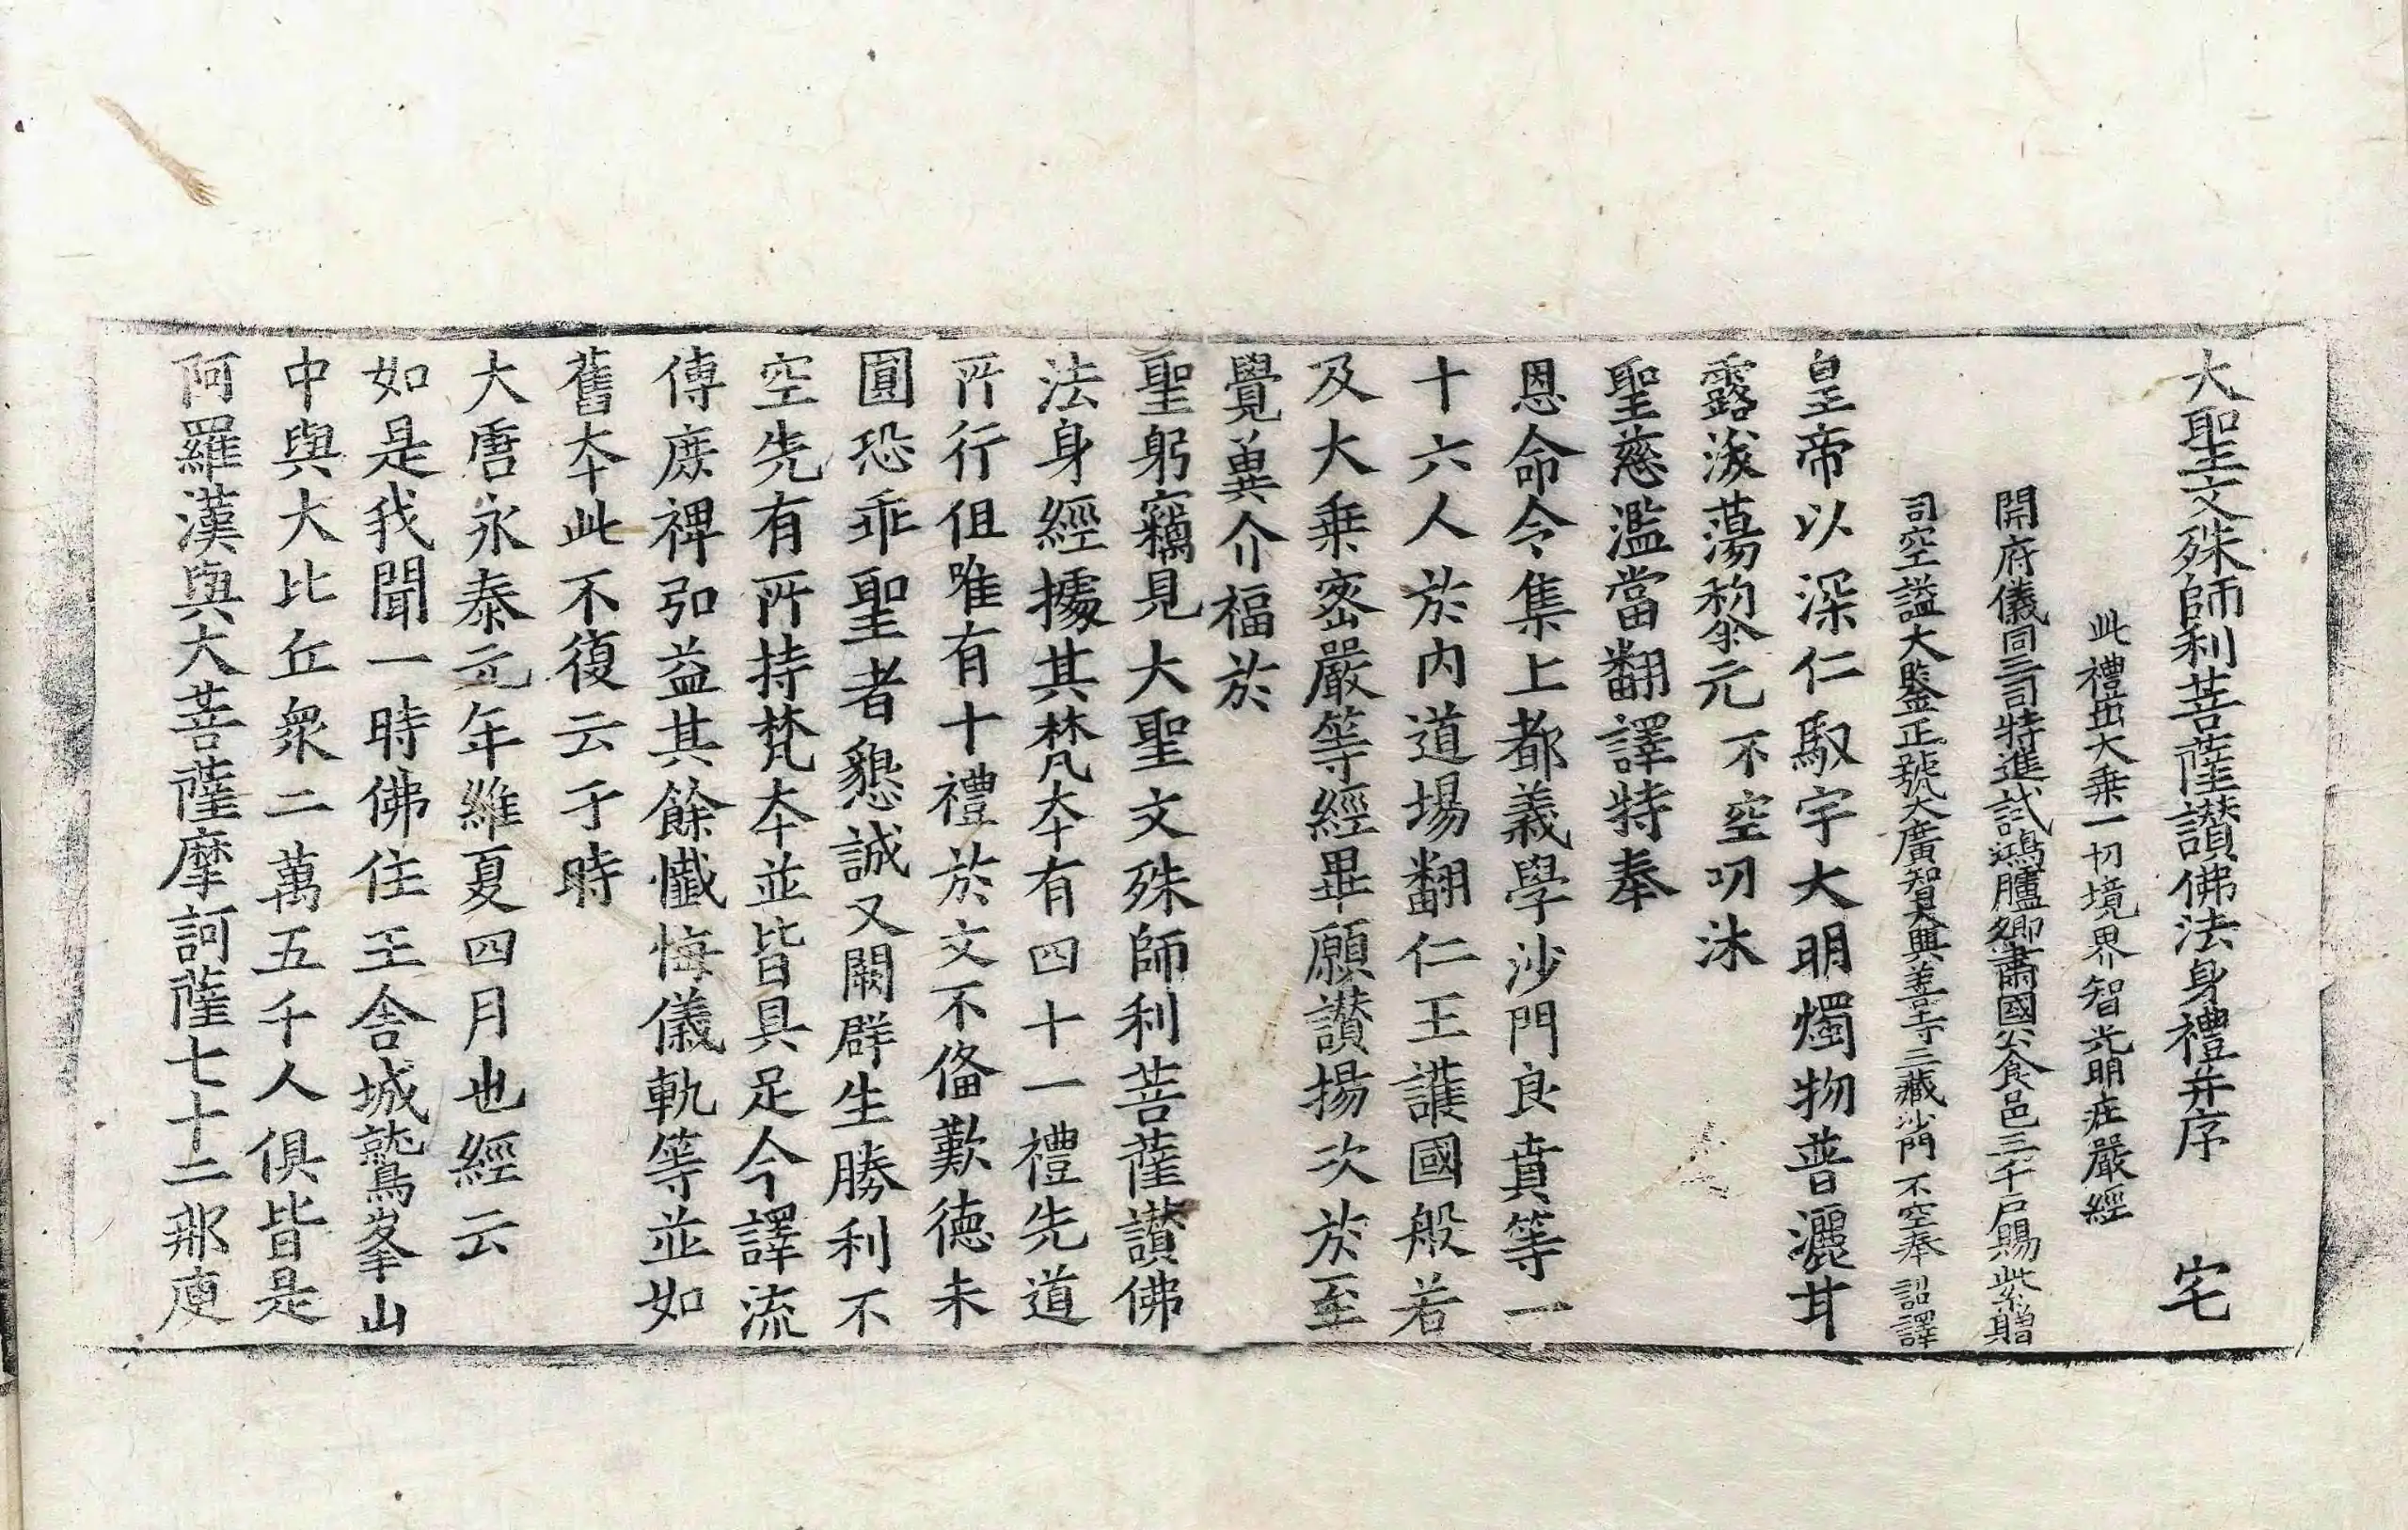 大聖文殊師利菩薩讃佛法身禮并序　宅
此禮出大乗一切境界智光明庄嚴經
開府儀同三司特進試鴻臚卿肅國公食邑三千戸賜紫贈
司空諡大鑒正號大廣智大興善寺三藏沙門不空奉　詔譯
皇帝以深仁馭宇大明燭物普灑甘
露滌蕩黎元不空叨沐
聖慈濫當翻譯特奉
恩命令集上都義學沙門良賁等一
十六人於内道場翻仁王護國般若
及大乗密嚴等經畢願讃揚次於至
覺兾介福於
聖躬竊見大聖文殊師利菩薩讃佛
法身經據其梵夲有四十一禮先道
所行但唯有十禮於文不俻歎德未
圓恐乖聖者懇誠又闕群生勝利不
空先有所持梵夲並皆具足今譯流
傳庶禆弘益其餘懺悔儀軌等並如
舊夲此不復云于時
大唐永泰元年維夏四月也經云
如是我聞一時佛住王舍城鷲峯山
中與大比丘衆二萬五千人俱皆是
阿羅漢與大菩薩摩訶薩七十二那庾